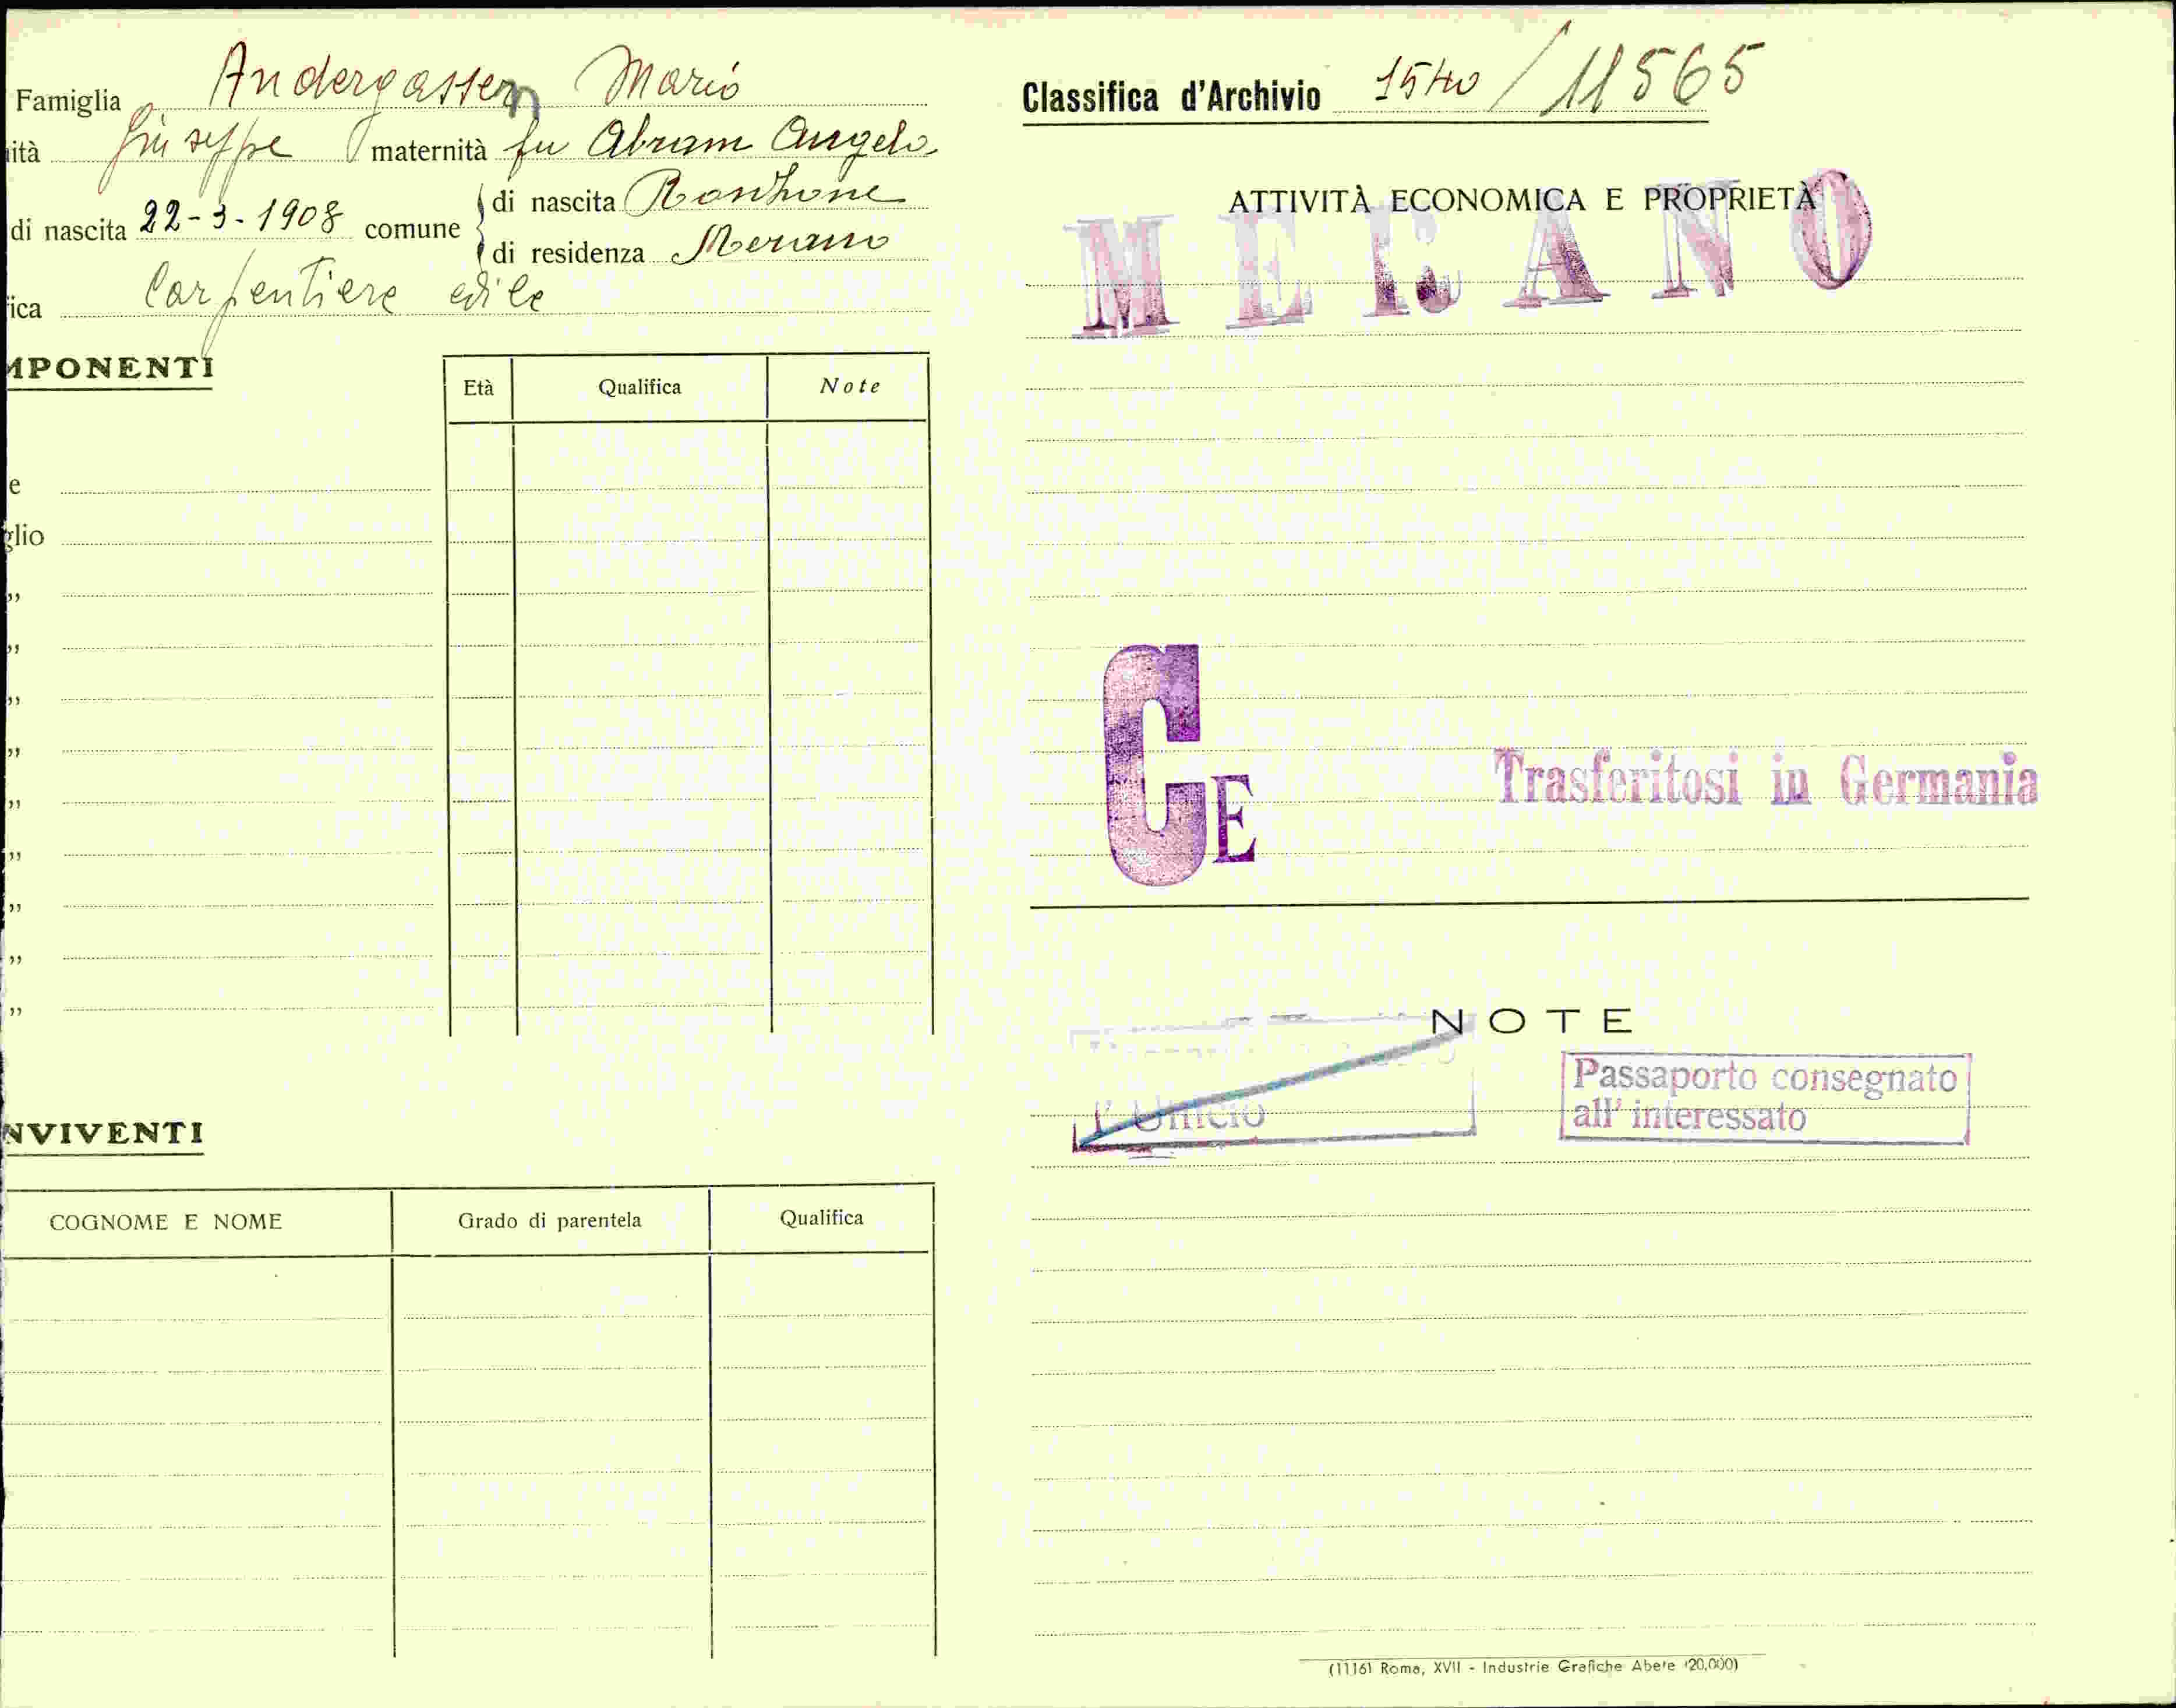 Famiglia Andergassen Mario
ità Giuseppe maternità fu Abram Angela
di nascita 22-3-1908 comune di nascita Ronzone
di residenza Merano
ica Carpentiere edile
MPONENTI
Età Qualifica Note
e
glio
"
"
"
"
"
"
"
"
"
NVIVENTI
COGNOME E NOME Grado di parentela Qualifica
Classifica d'Archivio 1540 / 11565
ATTIVITÀ ECONOMICA E PROPRIETÀ
MERANO
CE
Trasferitosi in Germania
NOTE
Passaporto consegnato
all' interessato
l' Ufficio
(11161 Roma, XVII - Industrie Grafiche Abete (20.000)